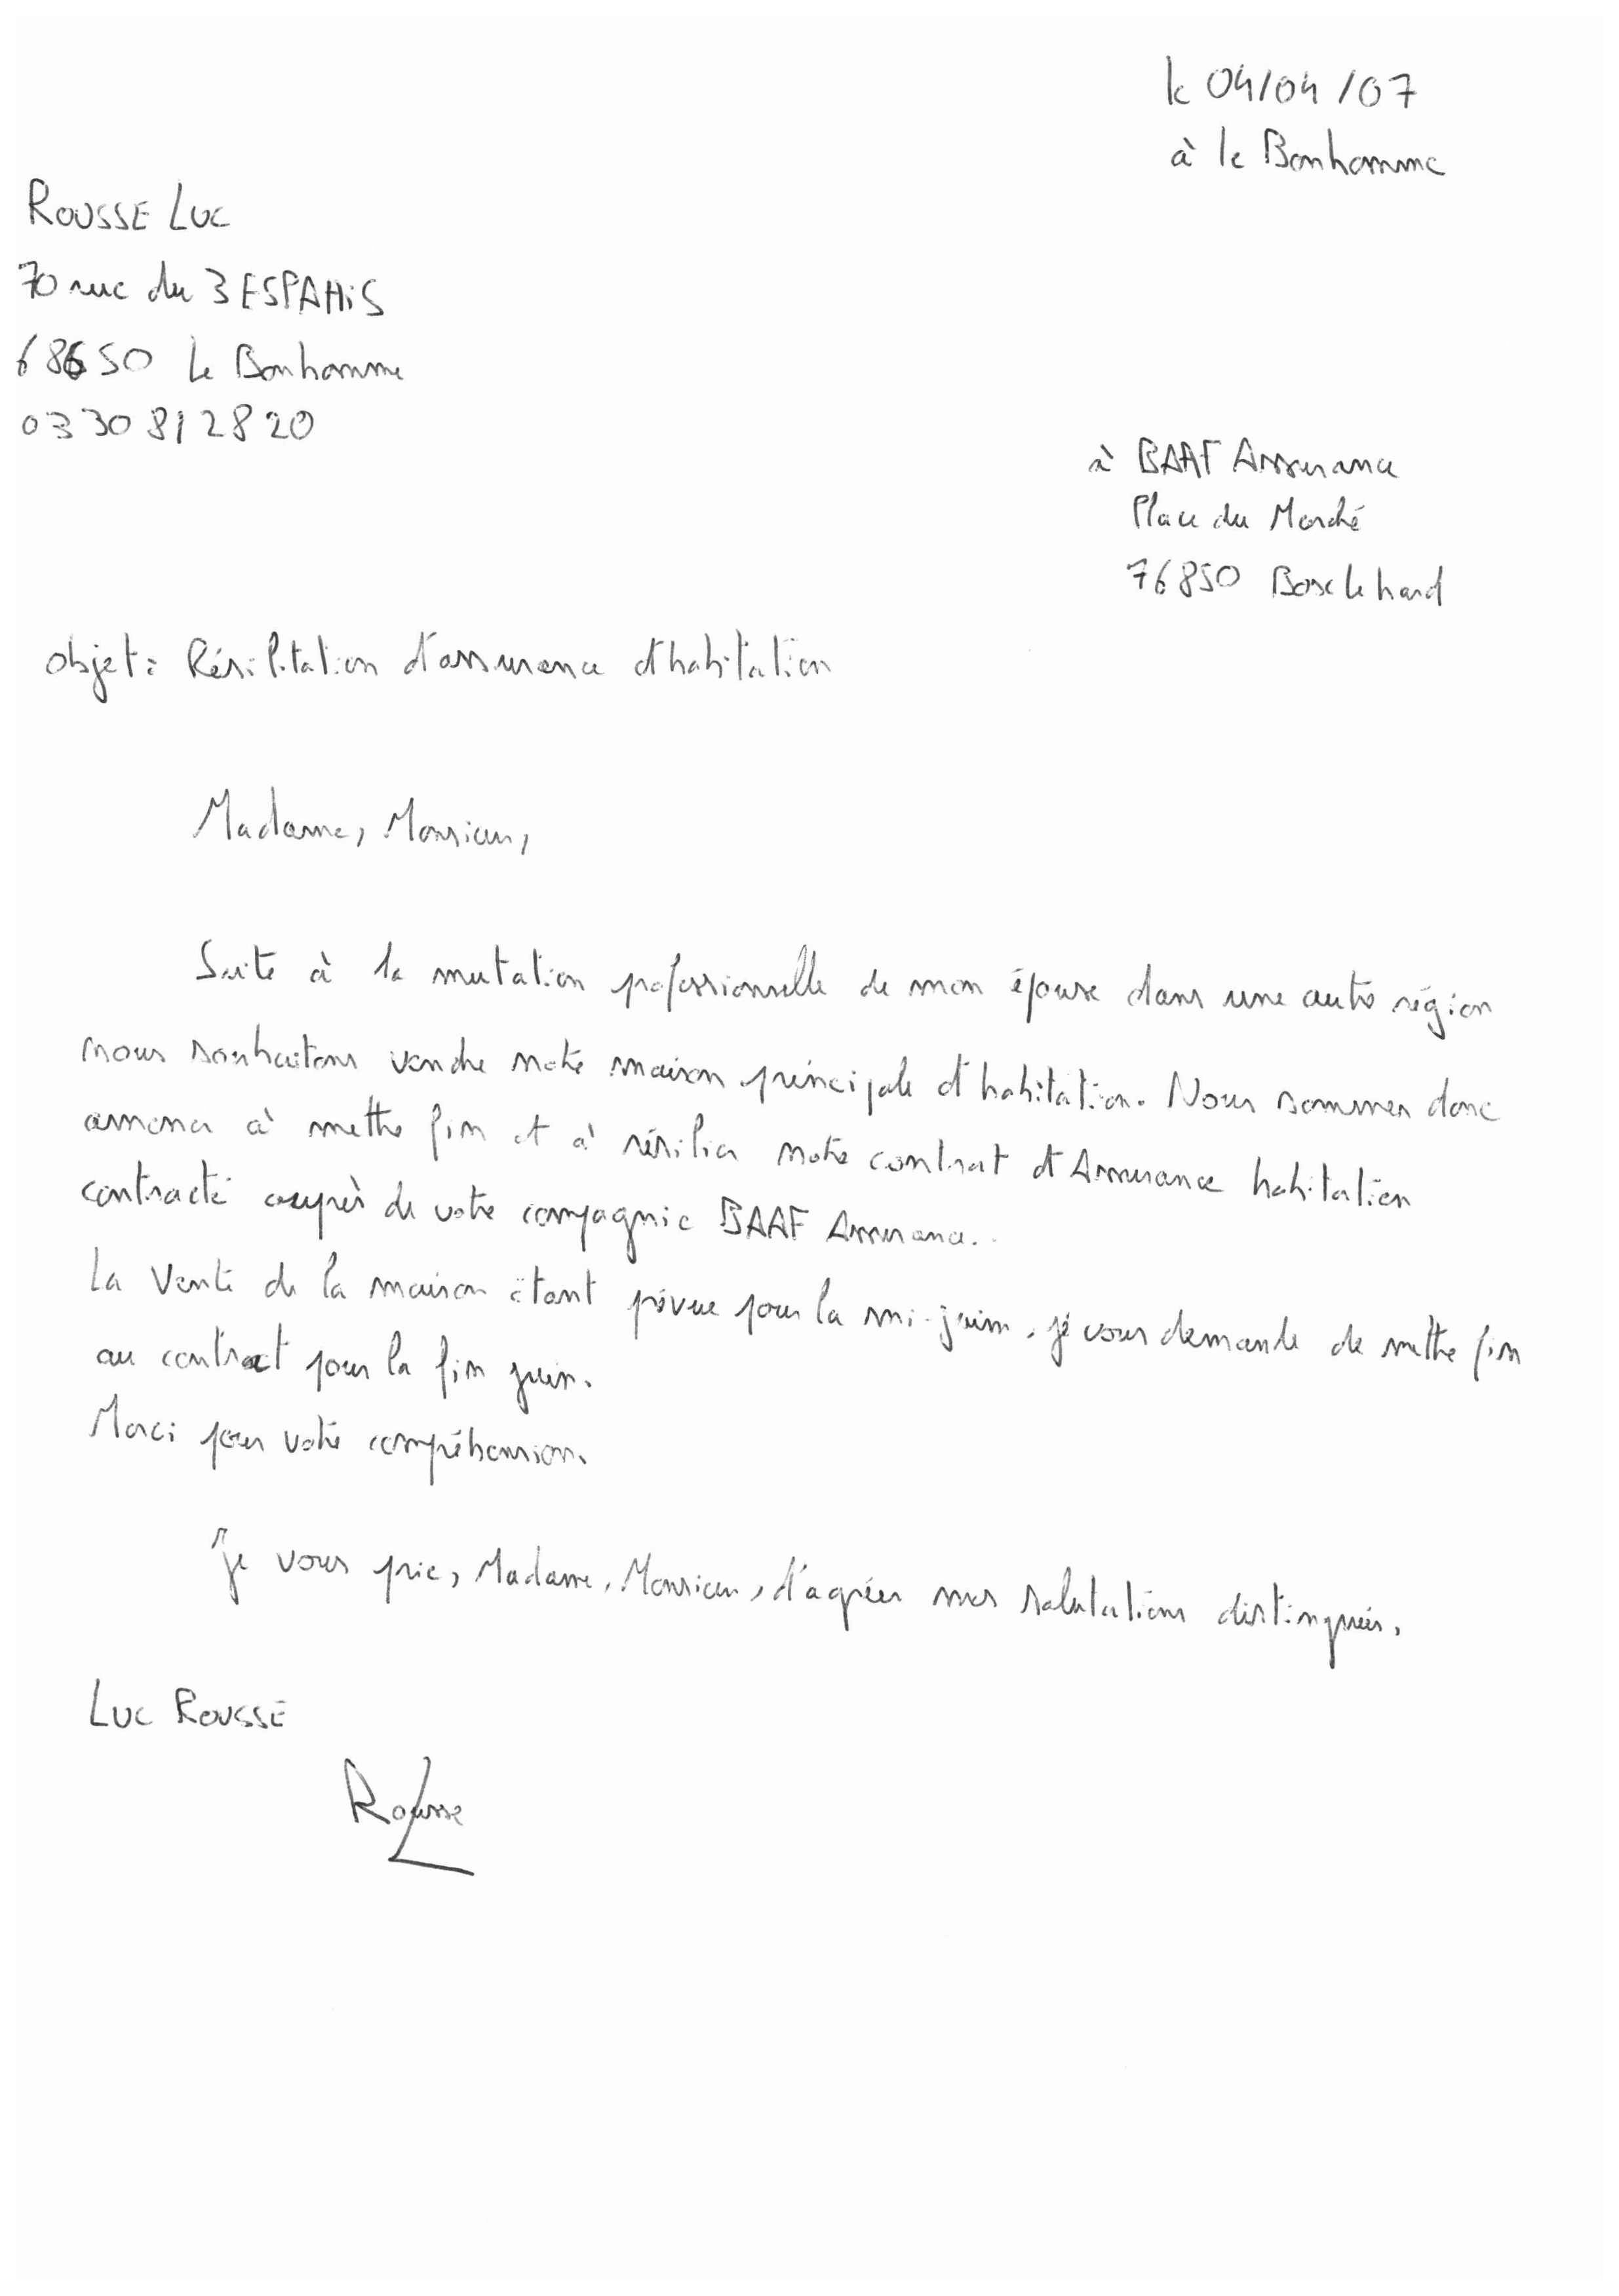 le 04/04/07
à le Bonhomme
ROUSSE LUC
70 rue du 3 ESPAHIS
68650 le Bonhomme
0330812820
à BAAF Assurance
Place du Marché
76850 Bosc le hard
objet : Résilitation d'assurance d'habitation
Madame, Monsieur,
Suite à la mutation pofessionnelle de mon épouse dans une autre région
nous souhaitons vendre notre maison principale d'habitation. Nous sommes donc
amener à mettre fin et à résilier notre contrat d'Assurance habitation
contracté auprès de votre compagnie BAAF Assurance.
La vente de la maison étant prévue pour la mi-juin, je vous demande de mettre fin
au contract pour la fin juin.
Merci pour votre compréhension.
Je vous prie, Madame, Monsieur, d'agréer mes salutations distinguées.
LUC ROUSSE
Rousse